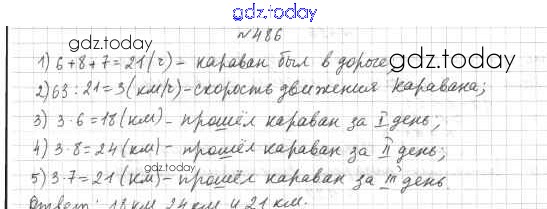 gdz.today
№486
gdz.today
1) 6+8+7=21(ч) - караван был в дороге;
gdz.today
2) 63:21=3(км/ч)-скорость движения каравана;
3) 3·6=18(км)-прошёл караван за I день;
4) 3·8=24(км)-прошёл караван за II день;
gdz.today
5) 3·7=21(км)-прошёл караван за III день.
Ответ: 18км, 24км и 21км.